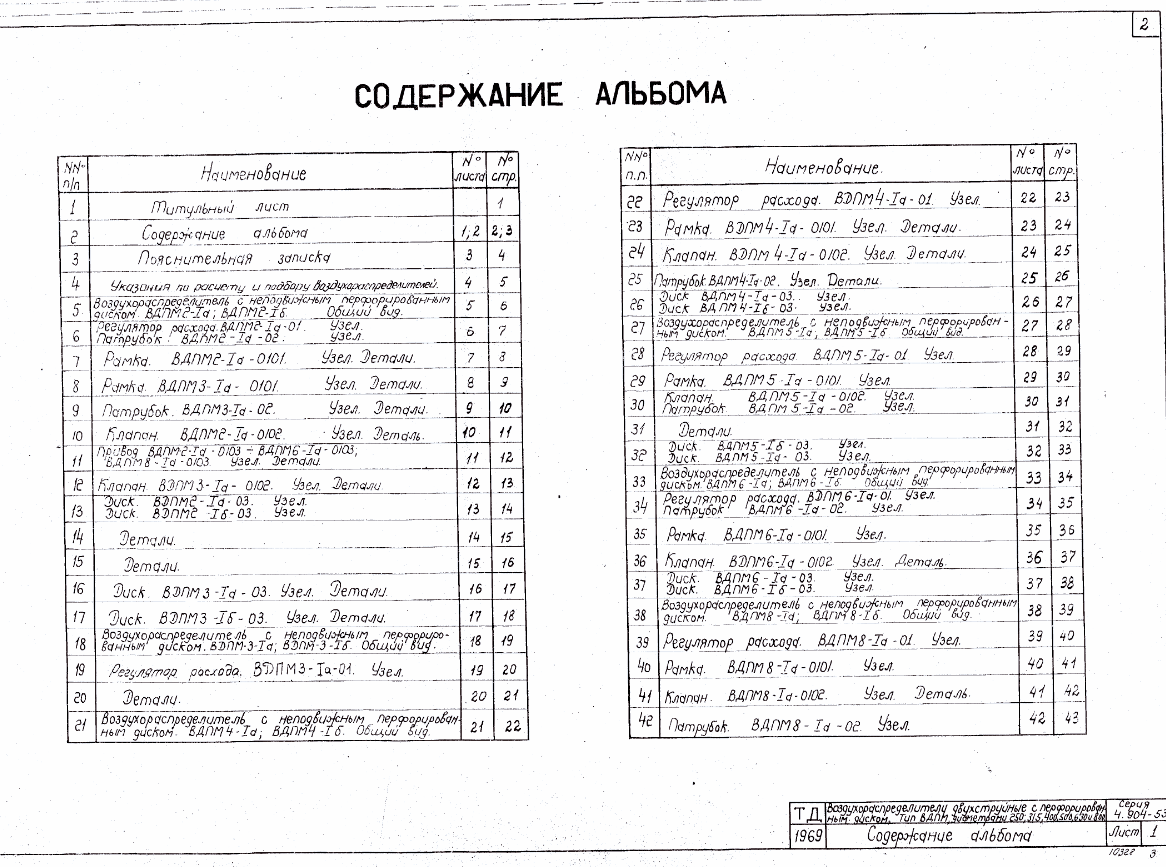 2
СОДЕРЖАНИЕ АЛЬБОМА
NNº п/п Наименование Nº листа Nº стр.
1 Титульный лист 1
2 Содержание альбома 1,2 2;3
3 Пояснительная записка 3 4
4 Указания по расчету и подбору воздухораспределителей. 4 5
5 Воздухораспределитель с неподвижным перфорированным 5 6
диском. ВДПМ2-Iа; ВДПМ2-Iб. Общий вид.
6 Регулятор расхода. ВДПМ2-Iа-01. Узел. 6 7
Патрубок. ВДПМ2-Iа-02. Узел.
7 Рамка. ВДПМ2-Iа-0101. Узел. Детали. 7 8
8 Рамка. ВДПМ3-Iа-0101. Узел. Детали. 8 9
9 Патрубок. ВДПМ3-Iа-02. Узел. Детали. 9 10
10 Клапан. ВДПМ2-Iа-0102. Узел. Деталь. 10 11
11 Привод ВДПМ2-Iа-0103 ÷ ВДПМ6-Iа-0103; 11 12
ВДПМ8-Iа-0103. Узел. Детали.
12 Клапан. ВДПМ3-Iа-0102. Узел. Детали. 12 13
13 Диск. ВДПМ2-Iа-03. Узел. 13 14
Диск. ВДПМ2-Iб-03. Узел.
14 Детали. 14 15
15 Детали. 15 16
16 Диск. ВДПМ3-Iа-03. Узел. Детали. 16 17
17 Диск. ВДПМ3-Iб-03. Узел. Детали. 17 18
18 Воздухораспределитель с неподвижным перфориро- 18 19
ванным диском. ВДПМ-3-Iа; ВДПМ-3-Iб. Общий вид.
19 Регулятор расхода. ВДПМ3-Iа-01. Узел 19 20
20 Детали. 20 21
21 Воздухораспределитель с неподвижным перфорирован- 21 22
ным диском. ВДПМ4-Iа; ВДПМ4-Iб. Общий вид.
NNº п.п. Наименование. Nº листа Nº стр.
22 Регулятор расхода. ВДПМ4-Iа-01. Узел. 22 23
23 Рамка. ВДПМ4-Iа-0101. Узел. Детали. 23 24
24 Клапан. ВДПМ4-Iа-0102. Узел. Детали. 24 25
25 Патрубок. ВДПМ4-Iа-02. Узел. Детали. 25 26
26 Диск ВДПМ4-Iа-03. Узел. 26 27
Диск ВДПМ4-Iб-03. Узел.
27 Воздухораспределитель с неподвижным перфорирован- 27 28
ным диском. ВДПМ5-Iа; ВДПМ5-Iб. Общий вид.
28 Регулятор расхода. ВДПМ5-Iа-01 Узел. 28 29
29 Рамка. ВДПМ5-Iа-0101. Узел. 29 30
30 Клапан. ВДПМ5-Iа-0102. Узел. 30 31
Патрубок ВДПМ5-Iа-02. Узел.
31 Детали. 31 32
32 Диск. ВДПМ5-Iб-03. Узел. 32 33
Диск. ВДПМ5-Iа-03. Узел.
33 Воздухораспределитель с неподвижным перфорированным 33 34
диском ВДПМ6-Iа; ВДПМ6-Iб. Общий вид
34 Регулятор расхода. ВДПМ6-Iа-01. Узел. 34 35
Патрубок ВДПМ6-Iа-02. Узел.
35 Рамка. ВДПМ6-Iа-0101. Узел. 35 36
36 Клапан. ВДПМ6-Iа-0102 Узел. Деталь. 36 37
37 Диск. ВДПМ6-Iа-03. Узел. 37 38
Диск. ВДПМ6-Iб-03. Узел
38 Воздухораспределитель с неподвижным перфорированным 38 39
диском. ВДПМ8-Iа; ВДПМ8-Iб. Общий вид.
39 Регулятор расхода. ВДПМ8-Iа-01. Узел. 39 40
40 Рамка. ВДПМ8-Iа-0101. Узел. 40 41
41 Клапан. ВДПМ8-Iа-0102. Узел. Деталь. 41 42
42 Патрубок. ВДПМ8-Iа-02. Узел. 42 43
ТД Воздухораспределители двухструйные с перфорирован Серия
ным диском. Тип ВДПМ, диаметрами 250, 315, 400, 500, 630 и 800 4.904-53
1969 Содержание альбома Лист 1
10322 3